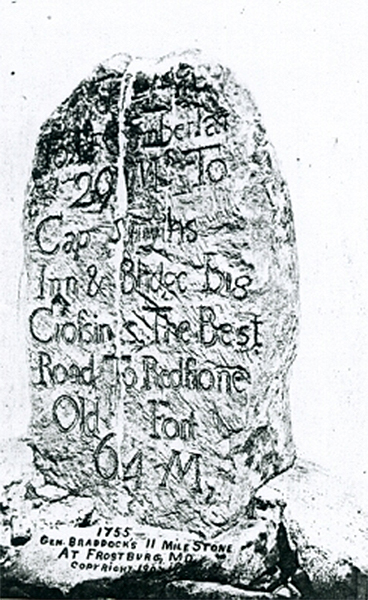 Fort Cumberlan
29 Ms To
Cap Smiths
Inn & Bridge Big
The Best
Road To Redstone
Old Fort
64 M,
1755
GEN. BRADDOCK'S 11 MILE STONE
AT FROSTBURG, MD.
COPYRIGHT